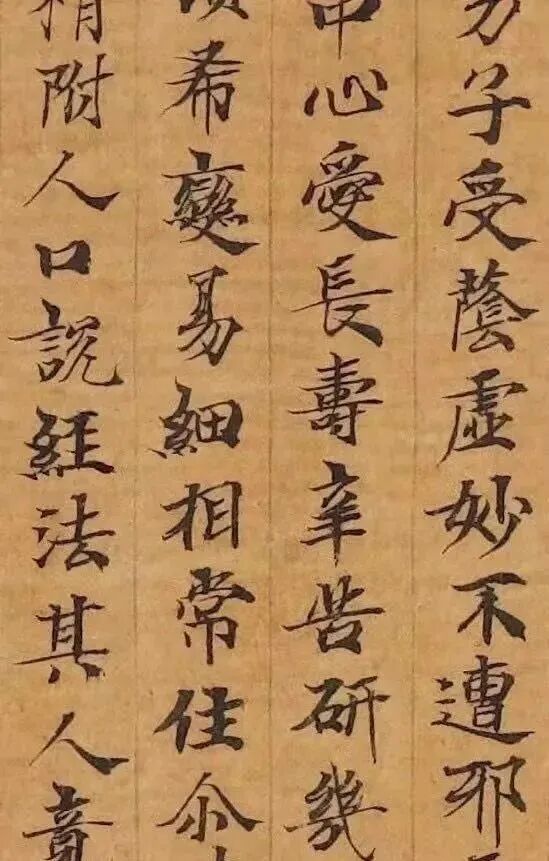 男子受蔭虛妙不遭邪
中心愛長壽辛苦研幾
頓希變易細相常住尒
精附人口說經法其人竟